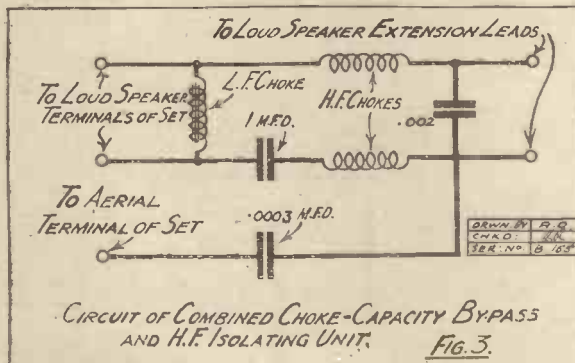 To Loud Speaker Extension Leads
L.F. Choke
To Loud Speaker
Terminals of Set
H.F. Chokes
1 M.F.D.
.002
To Aerial
Terminal of Set
.0003 M.F.D.
DRWN. BY R.Q.
CHKD:
SER: NO:
Circuit of Combined Choke-Capacity By-pass
and H.F. Isolating Unit.
Fig. 3.